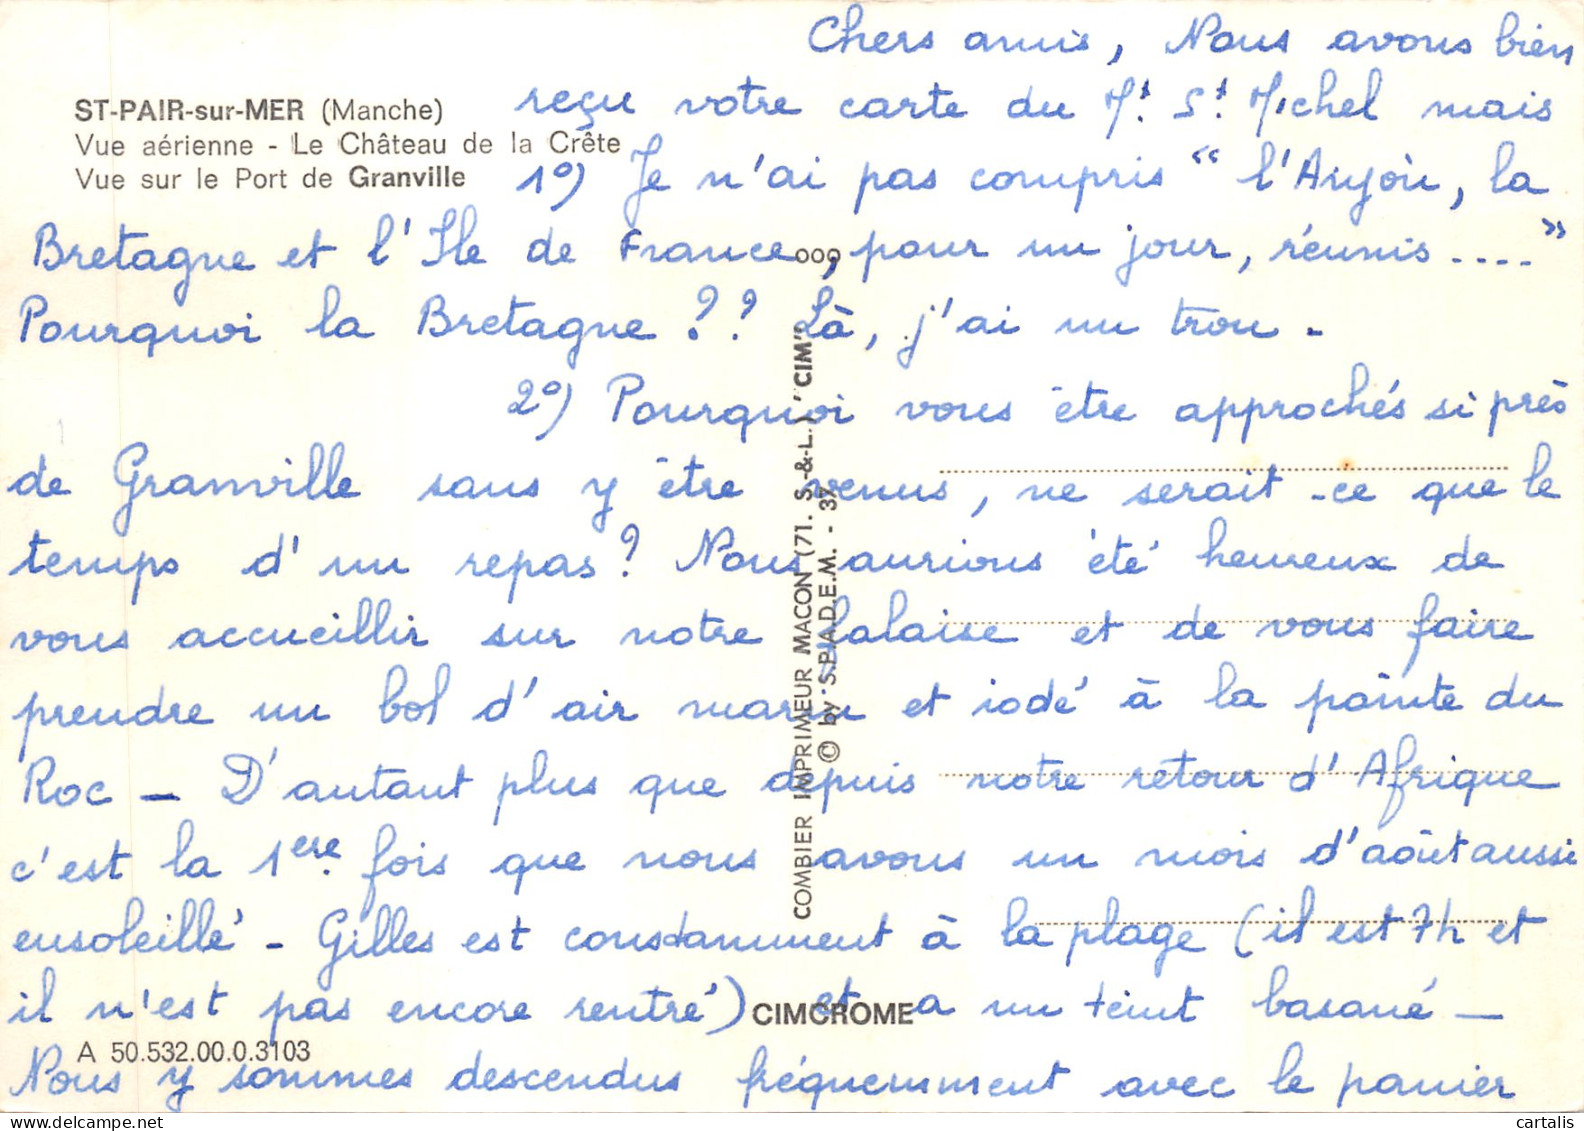 Chers amis, Nous avons bien
reçu votre carte du Mt. St. Michel mais
1°) Je n'ai pas compris "l'Anjou, la
Bretagne et l'Ile de France, pour un jour, réunis ...."
Pourquoi la Bretagne ?? Là, j'ai un trou -
2°) Pourquoi vous être approchés si près
de Granville sans y être venus, ne serait-ce que le
temps d'un repas? Nous aurions été heureux de
vous accueillir sur notre falaise et de vous faire
prendre un bol d'air marin et iodé à la pointe du
Roc - D'autant plus que depuis notre retour d'Afrique
c'est la 1ere. fois que nous avons un mois d'août aussi
ensoleillé - Gilles est constamment à la plage (il est 7h et
il n'est pas encore rentré) et a un teint basané -
Nous y sommes descendus fréquemment avec le panier
ST-PAIR-sur-MER (Manche)
Vue aérienne - Le Château de la Crête
Vue sur le Port de Granville
COMBIER IMPRIMEUR MACON (71. S.-&-L.) "CIM"
© by S.P.A.D.E.M. - 37
CIMCROME
A 50.532.00.0.3103
cartalis
delcampe.net